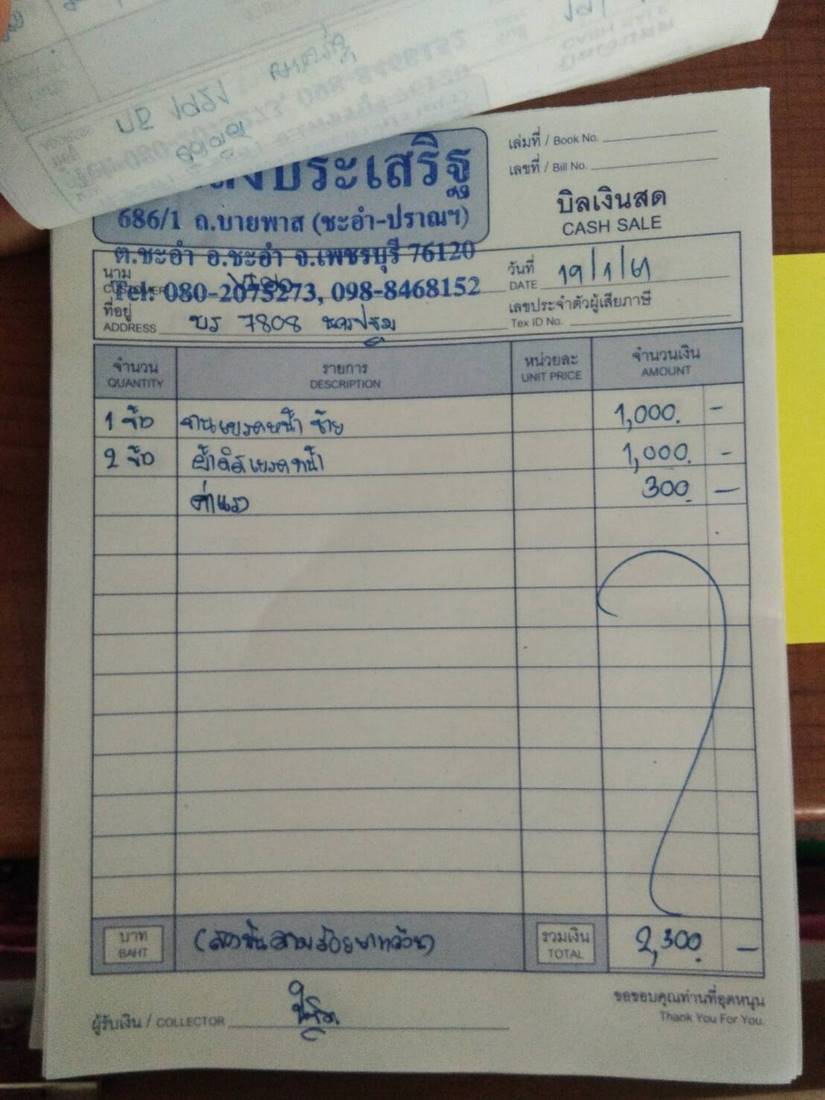 ประเสริฐ
686/1 ถ.บายพาส (ชะอำ-ปราณฯ)
ต.ชะอำ อ.ชะอำ จ.เพชรบุรี 76120
Tel: 080-2075273, 098-8468152
เล่มที่ / Book No.
เลขที่ / Bill No.
บิลเงินสด
CASH SALE
นาม
CUSTOMER
วันที่ 19/1/61
DATE
ที่อยู่ บร 7808 นครปฐม
ADDRESS
เลขประจำตัวผู้เสียภาษี
Tex ID No.
จำนวน รายการ หน่วยละ จำนวนเงิน
QUANTITY DESCRIPTION UNIT PRICE AMOUNT
1 ชิ้น จานเบรคหน้า ซ้าย 1,000 -
2 ชิ้น ผ้าดิสเบรคหน้า 1,000 -
ค่าแรง 300 -
บาท (สองพันสามร้อยบาทถ้วน) รวมเงิน 2,300 -
BAHT TOTAL
ผู้รับเงิน / COLLECTOR
ขอขอบคุณท่านที่อุดหนุน
Thank You For You.